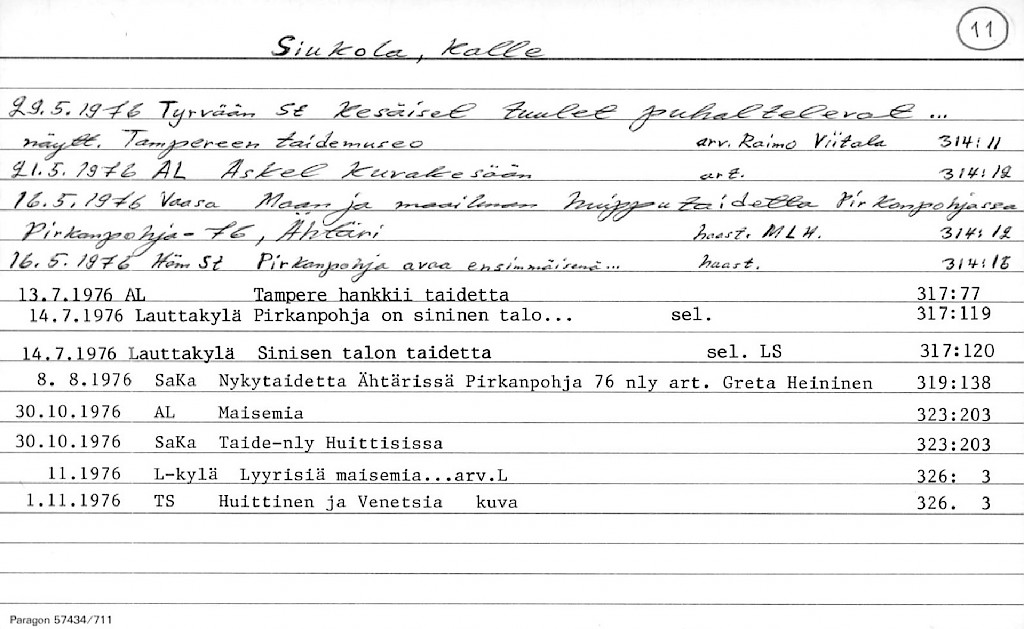 11
Siukola, Kalle
29.5.1976 Tyrvään St Kesäiset tuulet puhaltelevat ...
näytt. Tampereen taidemuseo arv. Raimo Viitala 314:11
21.5.1976 AL Askel kuvakesään art. 314:12
16.5.1976 Vaasa Maan ja maailman huipputaidetta Pirkanpohjassa
Pirkanpohja-76, Ähtäri haast. MLH. 314:12
16.5.1976 Häm St Pirkanpohja avaa ensimmäisenä... haast. 314:18
13.7.1976 AL Tampere hankkii taidetta 317:77
14.7.1976 Lauttakylä Pirkanpohja on sininen talo... sel. 317:119
14.7.1976 Lauttakylä Sinisen talon taidetta sel. LS 317:120
8. 8.1976 SaKa Nykytaidetta Ähtärissä Pirkanpohja 76 nly art. Greta Heininen 319:138
30.10.1976 AL Maisemia 323:203
30.10.1976 SaKa Taide-nly Huittisissa 323:203
11.1976 L-kylä Lyyrisiä maisemia...arv.L 326: 3
1.11.1976 TS Huittinen ja Venetsia kuva 326. 3
Paragon 57434/711